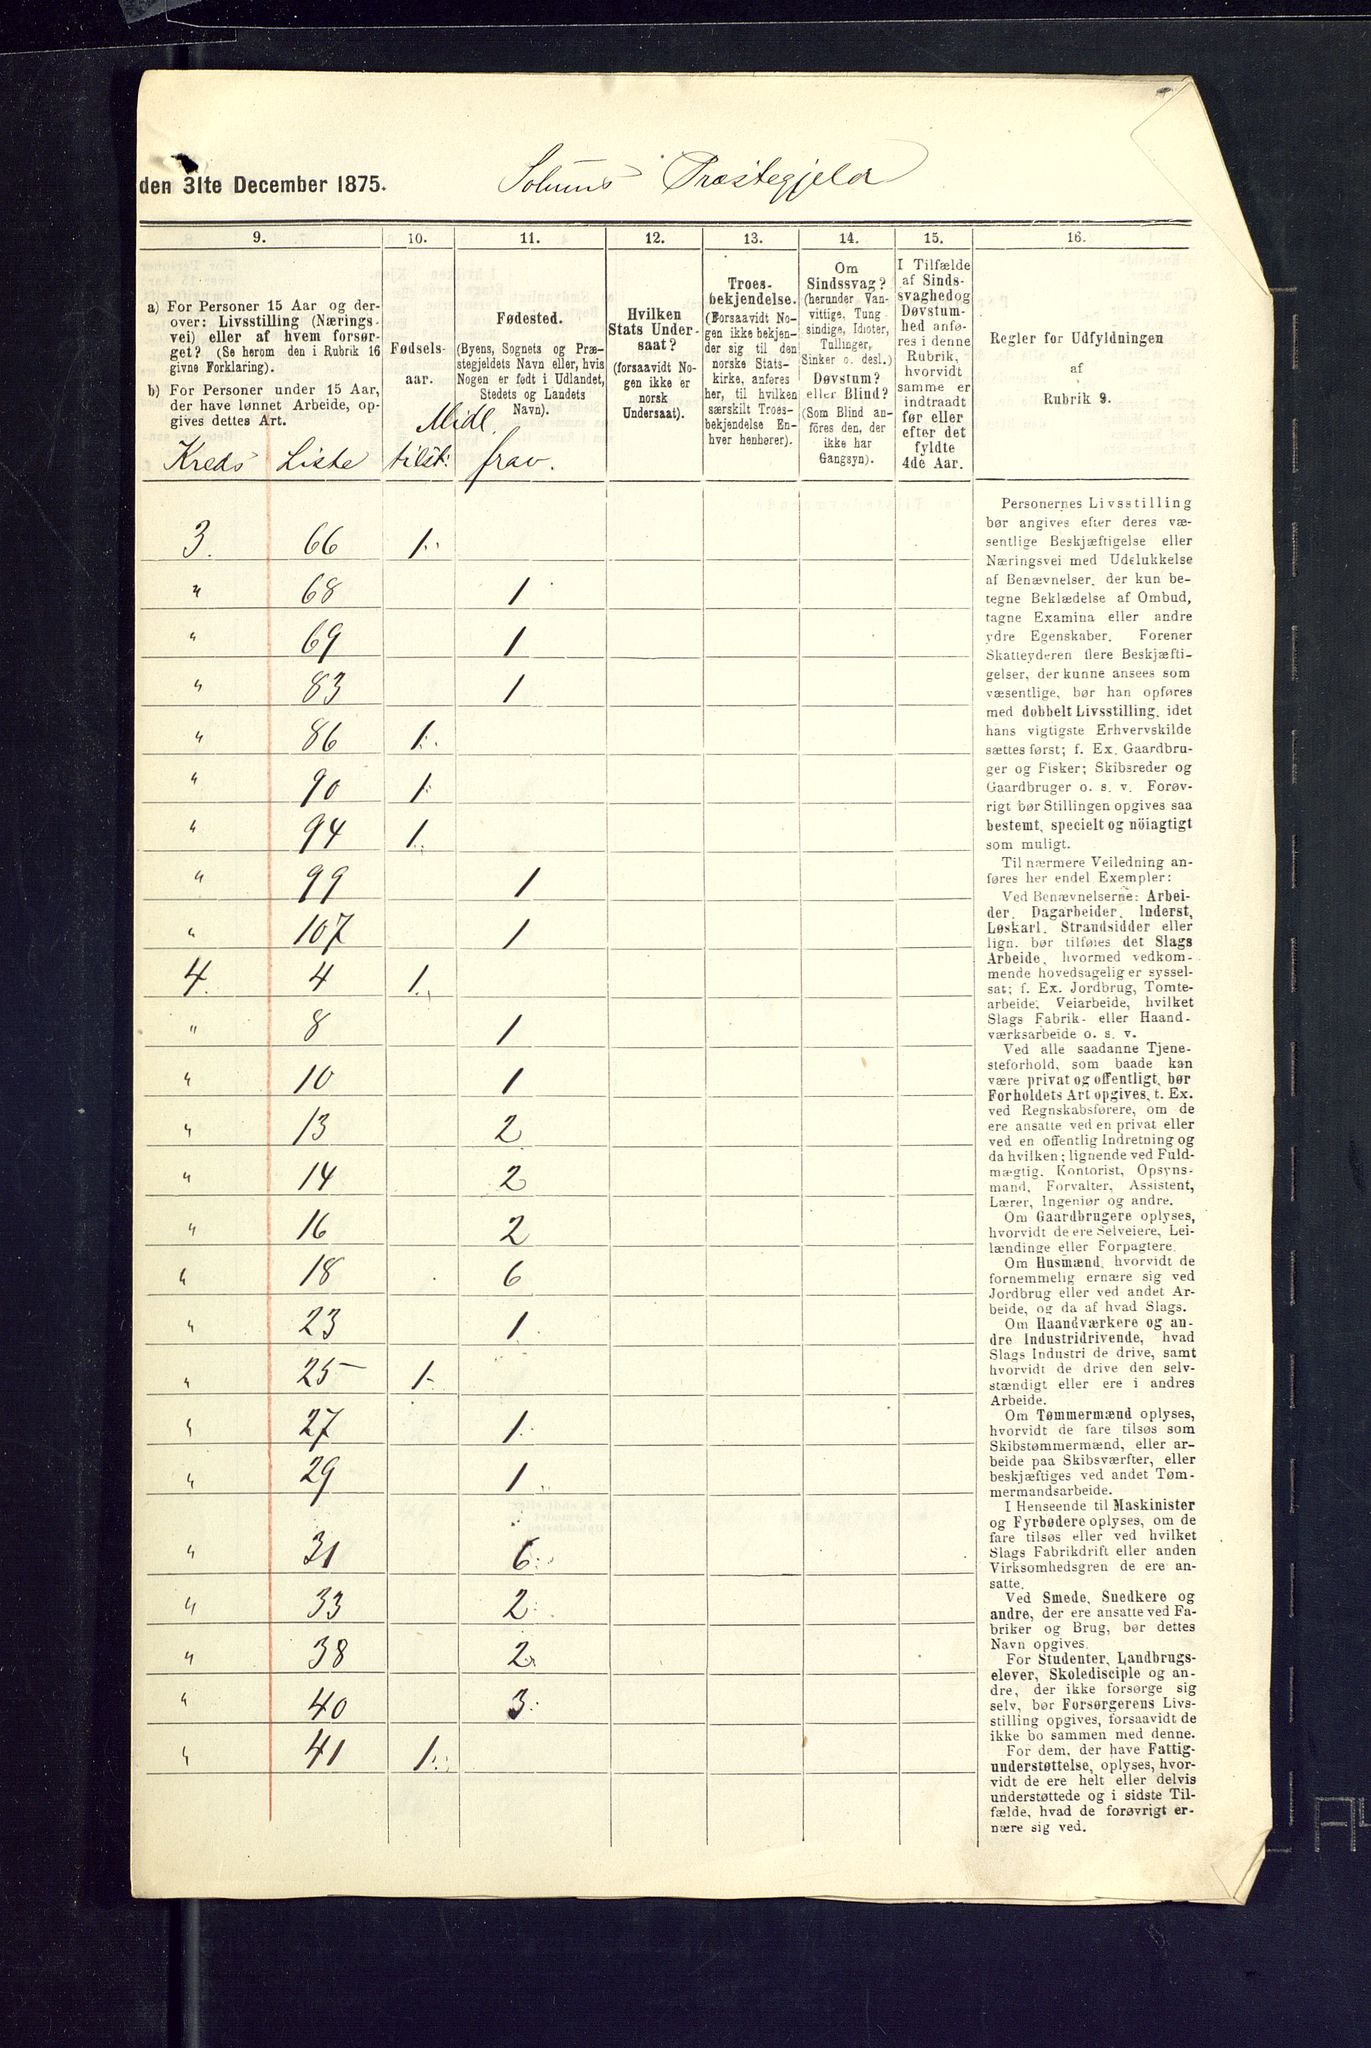 den 31te December 1875. Solums Præstegjeld
9. 10. 11. 12. 13. 14. 15. 16.
a) For Personer 15 Aar og der-
over: Livsstilling (Nærings-
vei) eller af hvem forsør-
get? (Se herom den i Rubrik 16
givne Forklaring).
b) For Personer under 15 Aar,
der have lønnet Arbeide, op-
gives dettes Art.
Fødsels-
aar.
Fødested.
(Byens, Sognets og Præ-
stegjeldets Navn eller, hvis
Nogen er født i Udlandet,
Stedets og Landets
Navn).
Hvilken
Stats Under-
saat?
(forsaavidt No-
gen ikke er
norsk
Undersaat).
Troes-
bekjendelse.
(Forsaavidt No-
gen ikke bekjen-
der sig til den
norske Stats-
kirke, anføres
her, til hvilken
særskilt Troes-
bekjendelse En-
hver henhører).
Om
Sindssvag?
(herunder Van-
vittige, Tung-
sindige, Idioter,
Tullinger,
Sinker o. desl.)
Døvstum?
eller Blind?
(Som Blind an-
føres den, der
ikke har
Gangsyn).
I Tilfælde
af Sinds-
svaghed og
Døvstum-
hed anfø-
res i denne
Rubrik,
hvorvidt
samme er
indtraadt
før eller
efter det
fyldte
4de Aar.
Regler for Udfyldningen
af
Rubrik 9.
Midl.
Kreds Liste tilst: frav.
3. 66 1.
" 68 1
" 69 1
" 83 1
" 86 1.
" 90 1.
" 94 1.
" 99 1
" 107 1
4. 4 1.
" 8 1
" 10 1
" 13 2
" 14 2
" 16 2
" 18 6
" 23 1.
" 25 1.
" 27 1.
" 29 1.
" 31 6.
" 33 2.
" 38 2.
" 40 3.
" 41 1.
Personernes Livsstilling
bør angives efter deres væ-
sentlige Beskjæftigelse eller
Næringsvei med Udelukkelse
af Benævnelser, der kun be-
tegne Beklædelse af Ombud,
tagne Examina eller andre
ydre Egenskaber. Forener
Skatteyderen flere Beskjæfti-
gelser, der kunne ansees som
væsentlige, bør han opføres
med dobbelt Livsstilling, idet
hans vigtigste Erhvervskilde
sættes først; f. Ex. Gaardbru-
ger og Fisker; Skibsreder og
Gaardbruger o. s. v. Forøv-
rigt bør Stillingen opgives saa
bestemt, specielt og nöiagtigt
som muligt.
Til nærmere Veiledning an-
føres her endel Exempler:
Ved Benævnelserne: Arbei-
der, Dagarbeider, Inderst,
Løskarl, Strandsidder eller
lign. bør tilføies det Slags
Arbeide, hvormed vedkom-
mende hovedsagelig er syssel-
sat; f. Ex. Jordbrug, Tomte-
arbeide, Veiarbeide, hvilket
Slags Fabrik- eller Haand-
værksarbeide o. s. v.
Ved alle saadanne Tjene-
steforhold, som baade kan
være privat og offentligt, bør
Forholdets Art opgives, f. Ex.
ved Regnskabsførere, om de
ere ansatte ved en privat eller
ved en offentlig Indretning og
da hvilken; lignende ved Fuld-
mægtig, Kontorist, Opsyns-
mand, Forvalter, Assistent,
Lærer, Ingeniør og andre.
Om Gaardbrugere oplyses,
hvorvidt de ere Selveiere, Lei-
lændinge eller Forpagtere.
Om Husmænd, hvorvidt de
fornemmelig ernære sig ved
Jordbrug eller ved andet Ar-
beide, og da af hvad Slags.
Om Haandværkere og an-
dre Industridrivende, hvad
Slags Industri de drive, samt
hvorvidt de drive den selv-
stændigt eller ere i andres
Arbeide.
Om Tømmermænd oplyses,
hvorvidt de fare tilsøs som
Skibstømmermænd, eller ar-
beide paa Skibsværfter, eller
beskjæftiges ved andet Tøm-
mermandsarbeide.
I Henseende til Maskinister
og Fyrbødere oplyses, om de
fare tilsøs eller ved hvilket
Slags Fabrikdrift eller anden
Virksomhedsgren de ere an-
satte.
Ved Smede, Snedkere og
andre, der ere ansatte ved Fa-
briker og Brug, bør dettes
Navn opgives.
For Studenter, Landbrugs-
elever, Skoledisciple og an-
dre, der ikke forsørge sig
selv, bør Forsørgerens Livs-
stilling opgives, forsaavidt de
ikke bo sammen med denne.
For dem, der have Fattig-
understøttelse, oplyses, hvor-
vidt de ere helt eller delvis
understøttede og i sidste Til-
fælde, hvad de forøvrigt er-
nære sig ved.